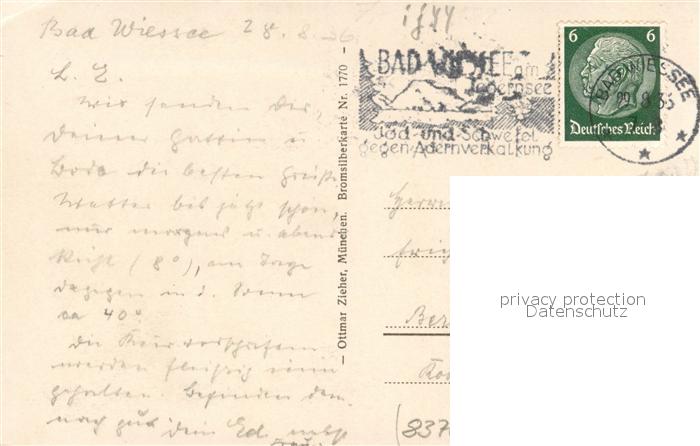 Bad Wiessee 28. 8. 36
L. E.
Wir senden Dir,
Deiner Gattin u
Bodo die besten Grüße
Wetter bis jetzt schön,
nur morgens u. abends
(8°), am Tage
dagegen in d. Sonne
ca 40°
Die Kurvorschriften
werden fleißig inne
gehalten. Befinden dem-
nach gut Dein Ed. nebst
Frau
Ottmar Zieher, München. Bromsilberkarte Nr. 1770
BAD WIESSEE am
Tegernsee
Jod- und Schwefel
gegen Adernverkalkung
6 6
Deutsches Reich
BAD WIESSEE
Herrn
Ber
privacy protection
Datenschutz
(837